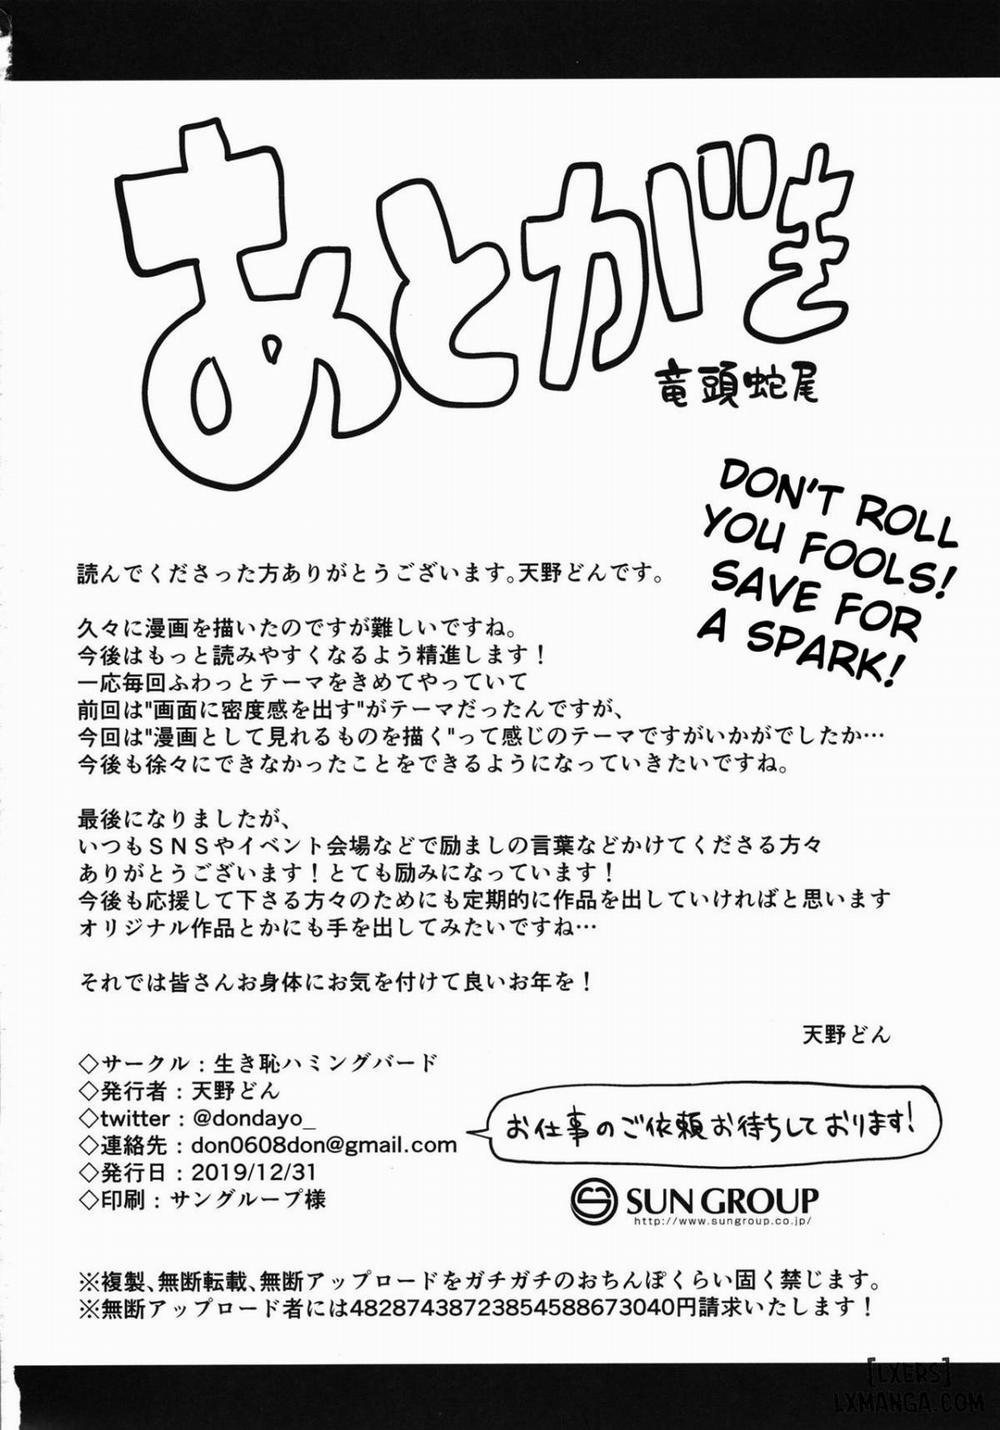 あとがき
竜頭蛇尾
DON'T ROLL
YOU FOOLS!
SAVE FOR
A SPARK!
読んでくださった方ありがとうございます。天野どんです。
久々に漫画を描いたのですが難しいですね。
今後はもっと読みやすくなるよう精進します！
一応毎回ふわっとテーマをきめてやっていて
前回は"画面に密度感を出す"がテーマだったんですが、
今回は"漫画として見れるものを描く"って感じのテーマですがいかがでしたか…
今後も徐々にできなかったことをできるようになっていきたいですね。
最後になりましたが、
いつもＳＮＳやイベント会場などで励ましの言葉などかけてくださる方々
ありがとうございます！とても励みになっています！
今後も応援して下さる方々のためにも定期的に作品を出していければと思います
オリジナル作品とかにも手を出してみたいですね…
それでは皆さんお身体にお気を付けて良いお年を！
天野どん
◇サークル：生き恥ハミングバード
◇発行者：天野どん
◇twitter：@dondayo_
◇連絡先：don0608don@gmail.com
◇発行日：2019/12/31
◇印刷：サングループ様
お仕事のご依頼お待ちしております!
SUN GROUP
http://www.sungroup.co.jp/
※複製、無断転載、無断アップロードをガチガチのおちんぽくらい固く禁じます。
※無断アップロード者には48287438723854588673040円請求いたします！
[LXERS]
LXMANGA.COM